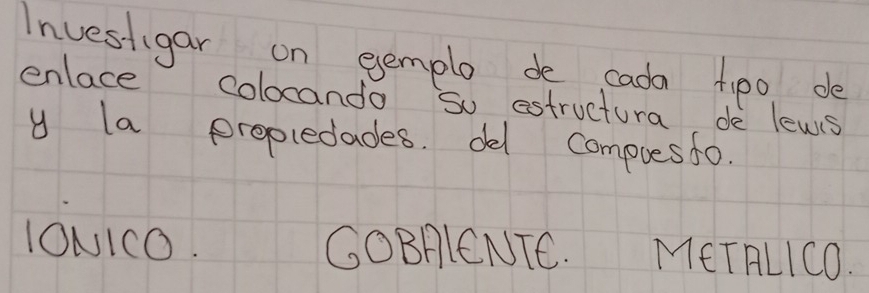 Investigar un ejemplo de cada tipo de
enlace colocando su estructura de lewis
y la propiedades. del compuesto.
IONICO. COBALENTE. METALICO.